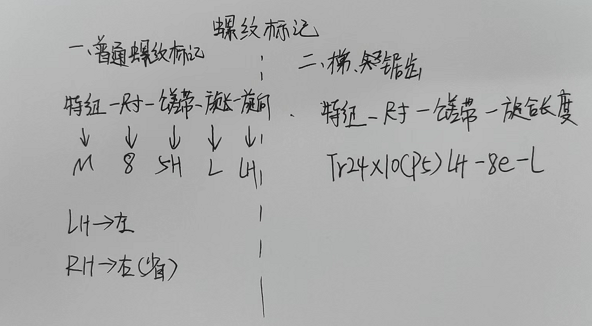 螺纹标记
一、普通螺纹标记
特征-尺寸-公差带-旋长-旋向
↓ ↓ ↓ ↓ ↓
M 8 5H L LH
LH→左
RH→右(省)
二、梯、矩、锯齿
特征-尺寸-公差带-旋合长度
Tr24×10(P5)LH-8e-L